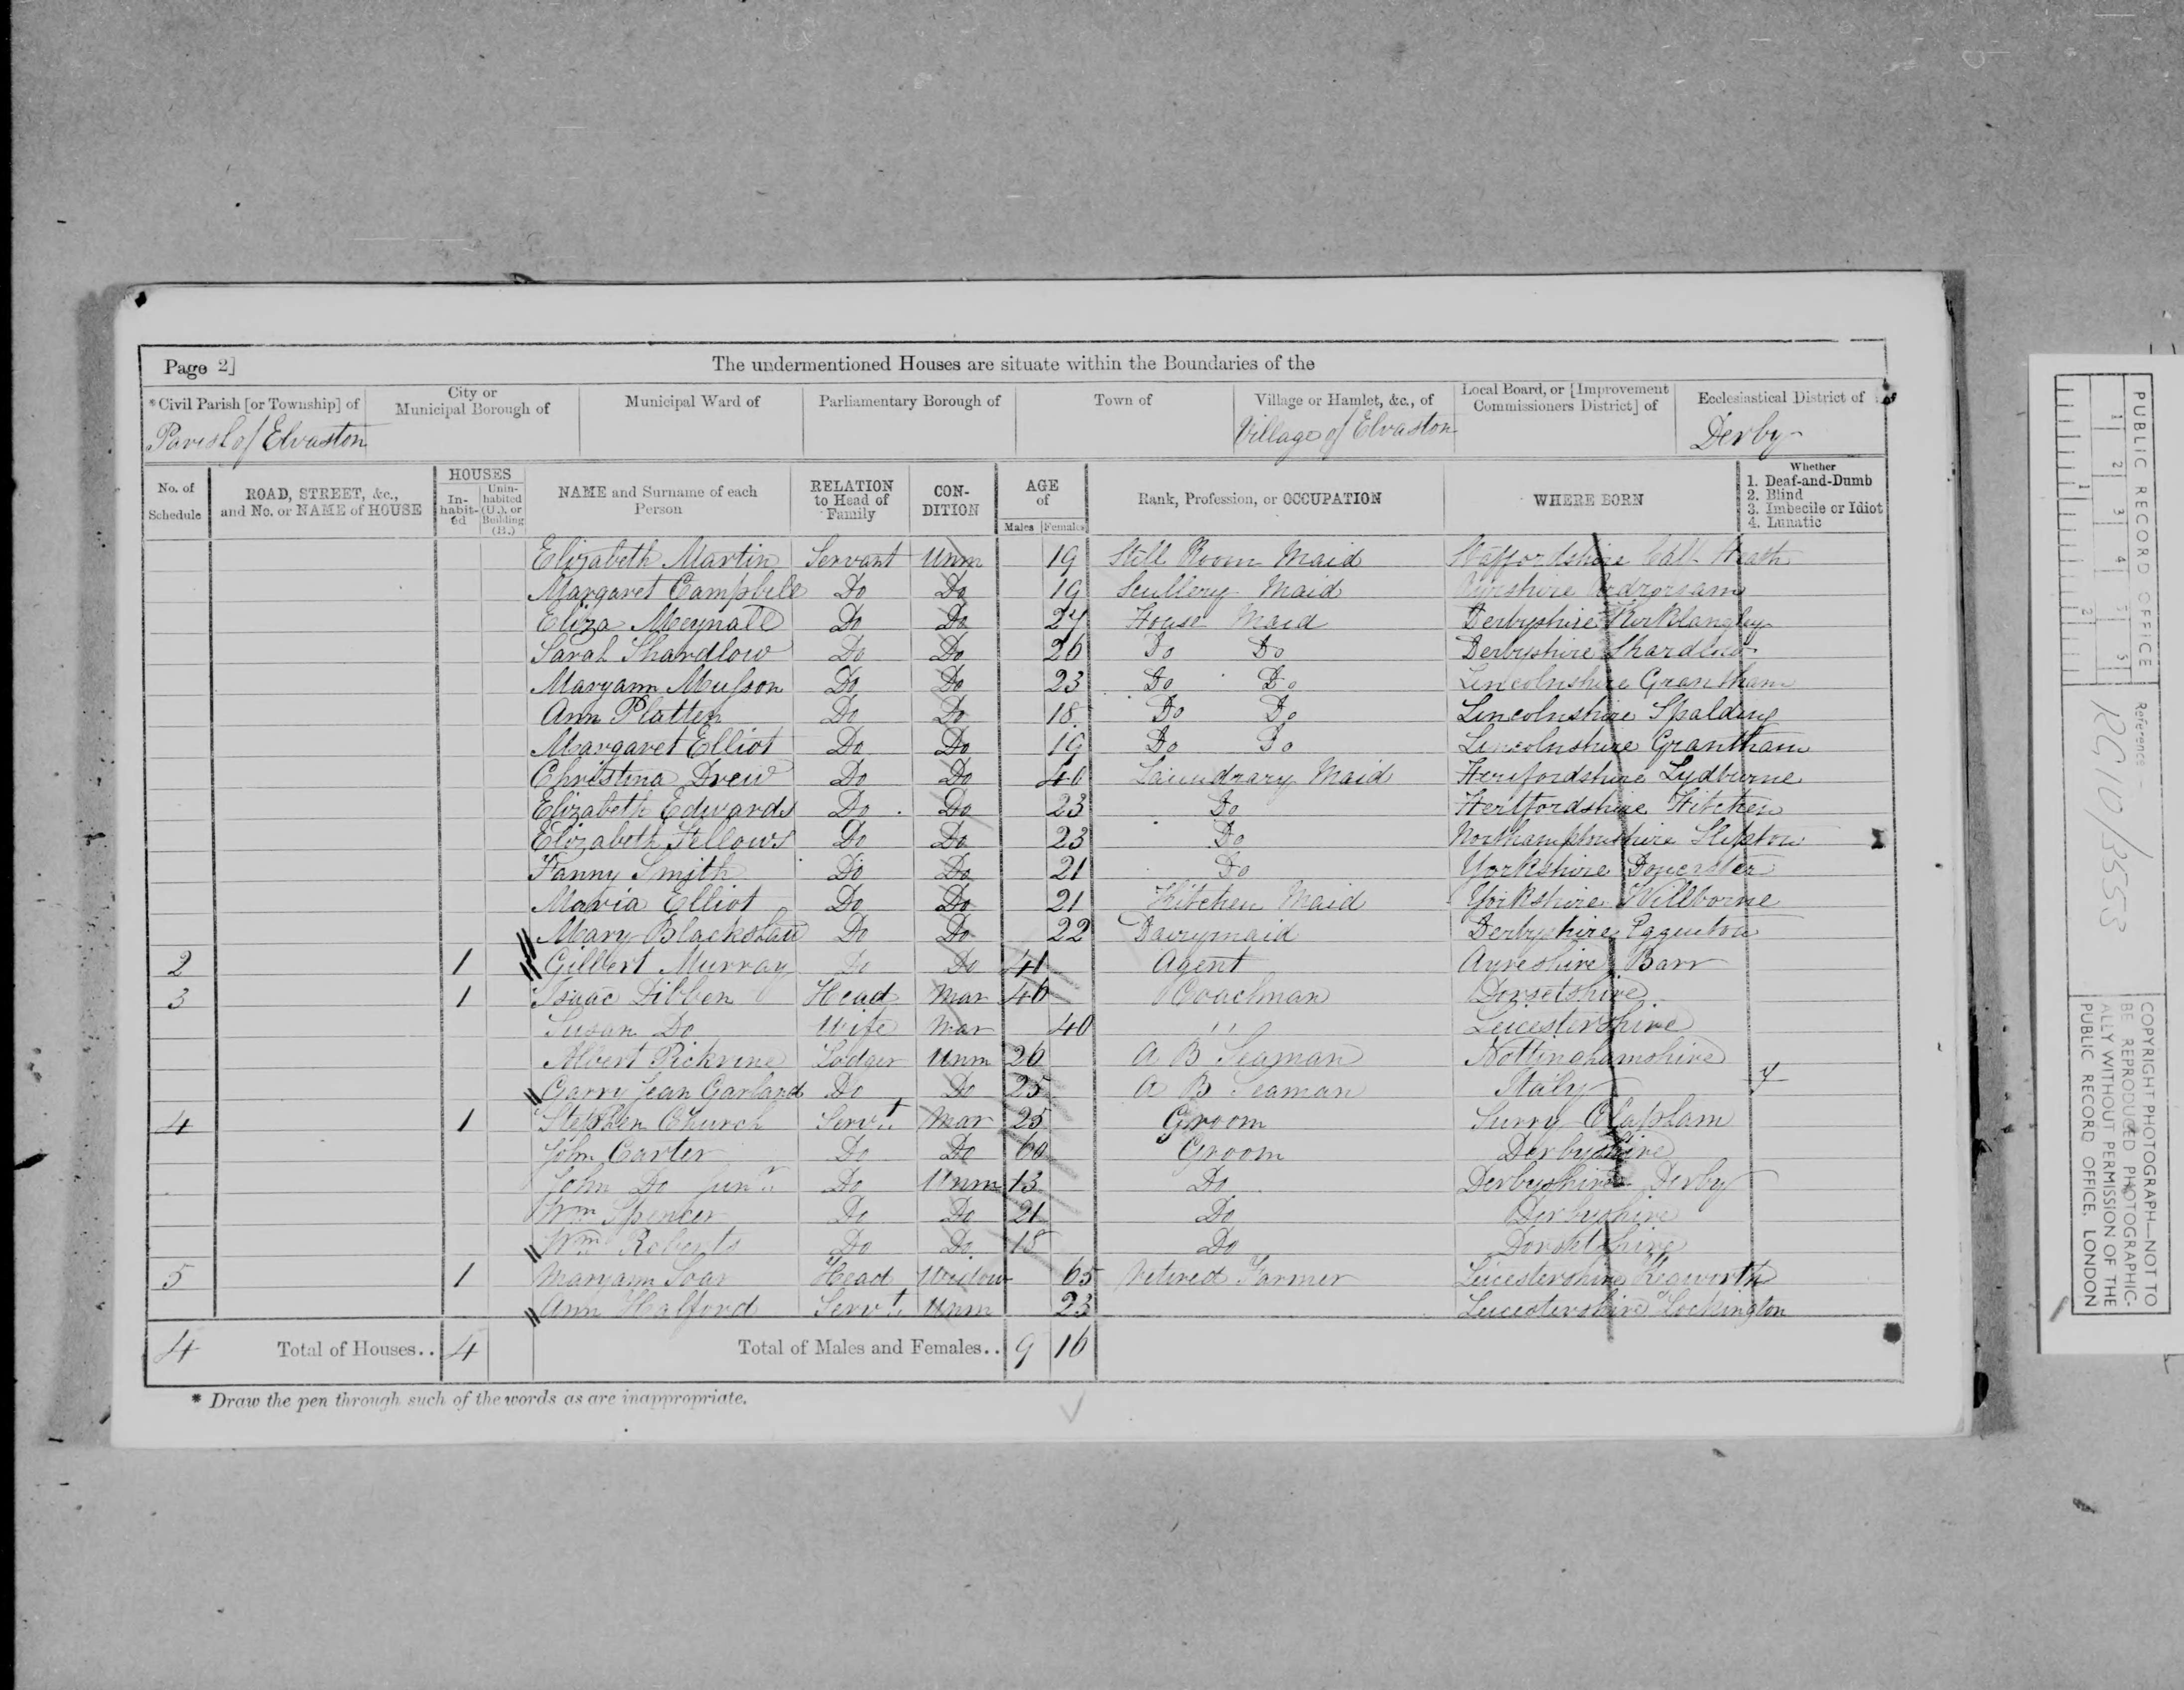 Page 2]
The undermentioned Houses are situate within the Boundaries of the
*Civil Parish [or Township] of
City or Municipal Borough of
Municipal Ward of
Parliamentary Borough of
Town of
Village or Hamlet, &c., of
Local Board, or [Improvement Commissioners District] of
Ecclesiastical District of
Parish of Elvaston
Village of Elvaston
Derby
No. of Schedule
ROAD, STREET, &c., and No. or NAME of HOUSE
HOUSES
In-habit-ed
Unin-habited (U.), or Building (B.)
NAME and Surname of each Person
RELATION to Head of Family
CON-DITION
AGE of
Males Females
Rank, Profession, or OCCUPATION
WHERE BORN
Whether
1. Deaf-and-Dumb
2. Blind
3. Imbecile or Idiot
4. Lunatic
Elizabeth Martin Servant Unm 19 Still Room Maid Staffordshire Heath
Margaret Campbell Do Do 19 Scullery Maid Ayrshire
Eliza Meynall Do Do 24 House Maid Derbyshire Kirklangley
Sarah Shardlow Do Do 26 Do Do Derbyshire Shardlow
Maryann Musson Do Do 23 Do Do Lincolnshire Grantham
Ann Platten Do Do 18 Do Do Lincolnshire Spalding
Margaret Elliot Do Do 19 Do Do Lincolnshire Grantham
Christina Drew Do Do 46 Laundrary Maid Herefordshire Lydburne
Elizabeth Edwards Do Do 23 Do Hertfordshire Hitchen
Elizabeth Fellows Do Do 23 Do Northamptonshire Slipton
Fanny Smith Do Do 21 Do Yorkshire Doncaster
Maria Elliot Do Do 21 Kitchen Maid Yorkshire Willborne
Mary Blackshaw Do Do 22 Dairymaid Derbyshire Egginton
2 1 Gilbert Murray Do Do 41 Agent Ayreshire Barr
3 1 Isaac Dibben Head Mar 46 Coachman Dorsetshire
Susan Do Wife Mar 40 " Leicestershire
Albert Pickrine Lodger Unm 26 A B Seaman Nottinghamshire
Garry Jean Garland Do Do 25 A B Seaman Italy
4 1 Stephen Church Servt. Mar 25 Groom Surry Clapham
John Carter Do Do 60 Groom Derbyshire
John Do Junr. Do Unm 13 Do Derbyshire Derby
Wm Spencer Do Do 21 Do Derbyshire
Wm Roberts Do Do 15 Do Dorsetshire
5 1 Maryann Soar Head Widow 65 Retired Farmer Leicestershire Kegworth
Ann Halford Servt. Unm 23 Leicestershire Lockington
4 Total of Houses.. 4 Total of Males and Females.. 9 16
* Draw the pen through such of the words as are inappropriate.
PUBLIC RECORD OFFICE
1 2 3 4 5
1 2
Reference:-
RG 10/3553
COPYRIGHT PHOTOGRAPH—NOT TO
BE REPRODUCED PHOTOGRAPHIC-
ALLY WITHOUT PERMISSION OF THE
PUBLIC RECORD OFFICE, LONDON